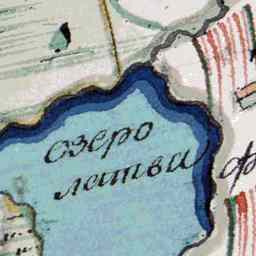 озеро
латва